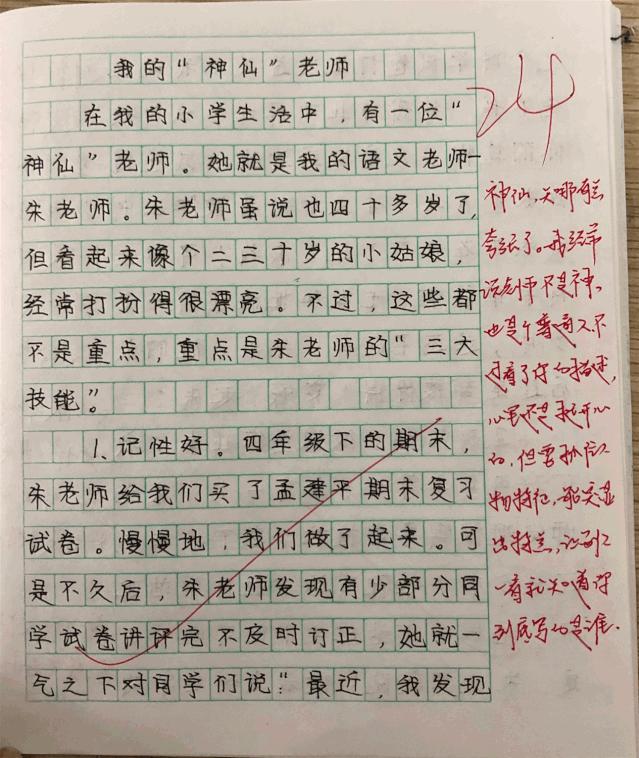 我的“神仙”老师
在我的小学生活中，有一位“
神仙”老师。她就是我的语文老师—
朱老师。朱老师虽说也四十多岁了，
但看起来像个二三十岁的小姑娘，
经常打扮得很漂亮。不过，这些都
不是重点，重点是朱老师的“三大
技能”。
1、记性好。四年级下的期末，
朱老师给我们买了孟建平期末复习
试卷。慢慢地，我们做了起来。可
是不久后，朱老师发现有少部分同
学试卷讲评完不及时订正，她就一
气之下对同学们说：“最近，我发现
24
神仙，
夸张了。我经常
说老师不是神，
也是个普通人。不
过看了你的描述，
心里还是挺开心
的，但要抓住人
物特征，能突显
出特点，让别人
一看就知道你
到底写的是谁．